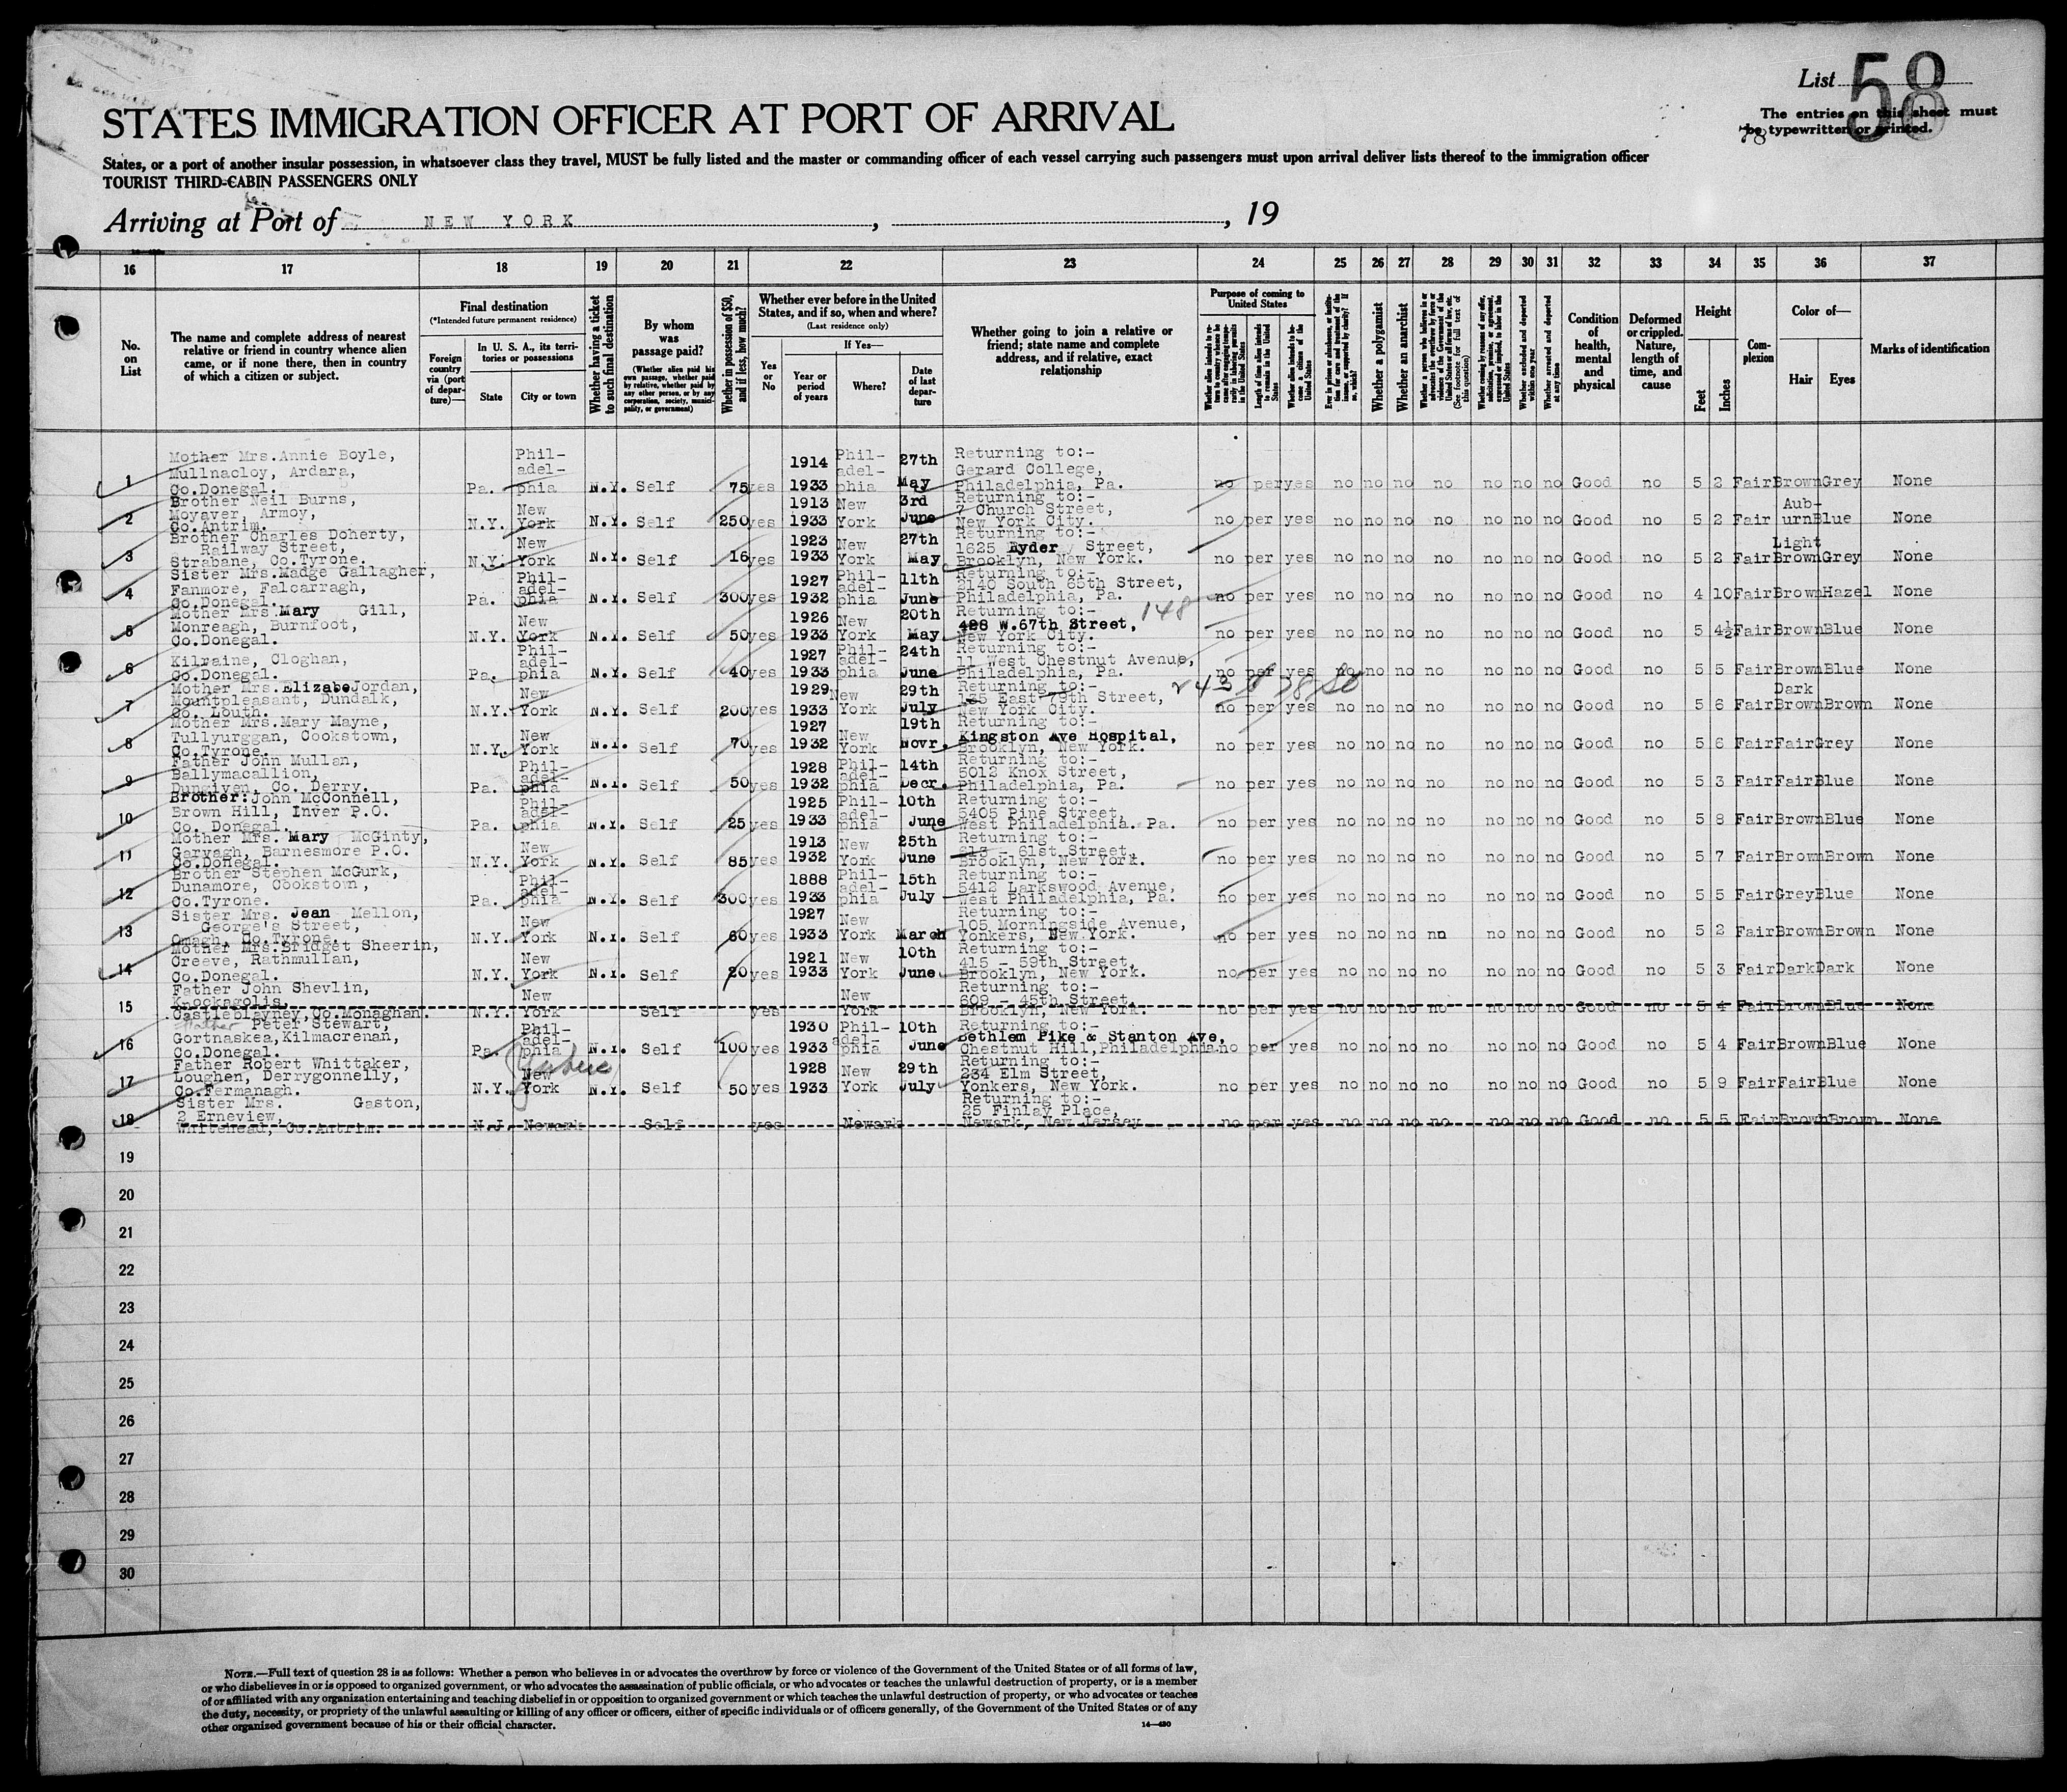 List 58
The entries on this sheet must
be typewritten or printed.
STATES IMMIGRATION OFFICER AT PORT OF ARRIVAL
States, or a port of another insular possession, in whatsoever class they travel, MUST be fully listed and the master or commanding officer of each vessel carrying such passengers must upon arrival deliver lists thereof to the immigration officer
TOURIST THIRD-CABIN PASSENGERS ONLY
Arriving at Port of NEW YORK, , 19
16 17 18 19 20 21 22 23 24 25 26 27 28 29 30 31 32 33 34 35 36 37
No. on List
The name and complete address of nearest relative or friend in country whence alien came, or if none there, then in country of which a citizen or subject.
Final destination
(*Intended future permanent residence)
Foreign country via (port of departure)—
In U. S. A., its territories or possessions
State
City or town
Whether having a ticket to such final destination
By whom was passage paid?
(Whether alien paid his own passage, whether paid by relative, whether paid by any other person, or by any corporation, society, municipality, or government)
Whether in possession of $50, and if less, how much?
Whether ever before in the United States, and if so, when and where?
(Last residence only)
Yes or No
If Yes—
Year or period of years
Where?
Date of last departure
Whether going to join a relative or friend; state name and complete address, and if relative, exact relationship
Purpose of coming to United States
Length of time alien intends to remain in the United States
Whether alien intends to become a citizen of the United States
Whether a polygamist
Whether an anarchist
(See footnote for full text of this question)
Whether excluded and deported within one year
Whether arrested and deported at any time
Condition of health, mental and physical
Deformed or crippled. Nature, length of time, and cause
Height
Feet
Inches
Complexion
Color of—
Hair
Eyes
Marks of identification
1 Mother Mrs.Annie Boyle, Mullnacloy, Ardara, Co.Donegal. Pa. Phil-adel-phia N.Y. Self 75 yes 1914 1933 Phil-adel-phia 27th May Returning to:- Gerard College, Philadelphia, Pa. no per yes no no no no no no no Good no 5 2 Fair Brown Grey None
2 Brother Neil Burns, Moyaver, Armoy, Co.Antrim. N.Y. New York N.Y. Self 250 yes 1913 1933 New York 3rd June Returning to:- 7 Church Street, New York City. no per yes no no no no no no no Good no 5 2 Fair Aub-urn Blue None
3 Brother Charles Doherty, Railway Street, Strabane, Co.Tyrone. N.Y. New York N.Y. Self 16 yes 1923 1933 New York 27th May Returning to:- 1625 Ryder Street, Brooklyn, New York. no per yes no no no no no no no Good no 5 2 Fair Light Brown Grey None
4 Sister Mrs.Madge Gallagher, Fanmore, Falcarragh, Co.Donegal. Pa. Phil-adel-phia N.Y. Self 300 yes 1927 1932 Phil-adel-phia 11th June Returning to:- 2140 South 65th Street, Philadelphia, Pa. no per yes no no no no no no no Good no 4 10 Fair Brown Hazel None
5 Mother Mrs.Mary Gill, Monreagh, Burnfoot, Co.Donegal. N.Y. New York N.Y. Self 50 yes 1926 1933 New York 20th May Returning to:- 428 W.67th Street, New York City. 148 no per yes no no no no no no no Good no 5 4½ Fair Brown Blue None
6 Kilraine, Cloghan, Co.Donegal. Pa. Phil-adel-phia N.Y. Self 40 yes 1927 1933 Phil-adel-phia 24th June Returning to:- 11 West Chestnut Avenue, Philadelphia, Pa. no per yes no no no no no no no Good no 5 5 Fair Brown Blue None
7 Mother Mrs.Elizabe Jordan, Mountpleasant, Dundalk, Co. Louth. N.Y. New York N.Y. Self 200 yes 1929 1933 New York 29th July Returning to:- 135 East 79th Street, New York City. 243 no per yes no no no no no no no Good no 5 6 Fair Dark Brown Brown None
8 Mother Mrs.Mary Mayne, Tullyurggan, Cookstown, Co.Tyrone. N.Y. New York N.Y. Self 70 yes 1927 1932 New York 19th Novr. Returning to:- Kingston Ave Hospital, Brooklyn, New York. no per yes no no no no no no no Good no 5 6 Fair Fair Grey None
9 Father John Mullan, Ballymacallion, Dungiven, Co. Derry. Pa. Phil-adel-phia N.Y. Self 50 yes 1928 1932 Phil-adel-phia 14th Decr. Returning to:- 5012 Knox Street, Philadelphia, Pa. no per yes no no no no no no no Good no 5 3 Fair Fair Blue None
10 Brother: John McConnell, Brown Hill, Inver P.O. Co. Donegal. Pa. Phil-adel-phia N.Y. Self 25 yes 1925 1933 Phil-adel-phia 10th June Returning to:- 5405 Pine Street, West Philadelphia. Pa. no per yes no no no no no no no Good no 5 8 Fair Brown Blue None
11 Mother Mrs. Mary McGinty, Garvagh, Barnesmore P.O. Co.Donegal. N.Y. New York N.Y. Self 85 yes 1913 1932 New York 25th June Returning to:- 613 - 61st Street, Brooklyn, New York. no per yes no no no no no no no Good no 5 7 Fair Brown Brown None
12 Brother Stephen McGurk, Dunamore, Cookstown, Co.Tyrone. Pa. Phil-adel-phia N.Y. Self 300 yes 1888 1933 Phil-adel-phia 15th July Returning to:- 5412 Larkswood Avenue, West Philadelphia, Pa. no per yes no no no no no no no Good no 5 5 Fair Grey Blue None
13 Sister Mrs. Jean Mellon, George's Street, Omagh, Co.Tyrone. N.Y. New York N.Y. Self 60 yes 1927 1933 New York March Returning to:- 105 Morningside Avenue, Yonkers, New York. no per yes no no no nn no no no Good no 5 2 Fair Brown Brown None
14 Mother Mrs.Bridget Sheerin, Creeve, Rathmullan, Co.Donegal. N.Y. New York N.Y. Self 20 yes 1921 1933 New York 10th June Returning to:- 415 - 59th Street, Brooklyn, New York. no per yes no no no no no no no Good no 5 3 Fair Dark Dark None
15 Father John Shevlin, Knockagolis, Castleblayney, Co.Monaghan. N.Y. New York Self yes New York Returning to:- 609 - 45th Street, Brooklyn, New York. no per yes no no no no no no no Good no 5 4 Fair Brown Blue None
16 Father Peter Stewart, Gortnaskea, Kilmacrenan, Co.Donegal. Pa. Phil-adel-phia N.Y. Self 100 yes 1930 1933 Phil-adel-phia 10th June Returning to:- Bethlem Pike & Stanton Ave, Chestnut Hill, Philadelphia. no per yes no no no no no no no Good no 5 4 Fair Brown Blue None
17 Father Robert Whittaker, Loughen, Derrygonnelly, Co.Fermanagh. N.Y. New York N.Y. Self 50 yes 1928 1933 New York 29th July Returning to:- 234 Elm Street, Yonkers, New York. no per yes no no no no no no no Good no 5 9 Fair Fair Blue None
18 Sister Mrs. Gaston, 2 Erneview, Whitehead, Co.Antrim. N.J. Newark Self yes Newark Returning to:- 25 Finlay Place, Newark, New Jersey no per yes no no no no no no no Good no 5 5 Fair Brown Brown None
19
20
21
22
23
24
25
26
27
28
29
30
NOTE.—Full text of question 28 is as follows: Whether a person who believes in or advocates the overthrow by force or violence of the Government of the United States or of all forms of law,
or who disbelieves in or is opposed to organized government, or who advocates the assassination of public officials, or who advocates or teaches the unlawful destruction of property, or is a member
of or affiliated with any organization entertaining and teaching disbelief in or opposition to organized government or which teaches the unlawful destruction of property, or who advocates or teaches
the duty, necessity, or propriety of the unlawful assaulting or killing of any officer or officers, either of specific individuals or of officers generally, of the Government of the United States or of any
other organized government because of his or their official character.
14—430